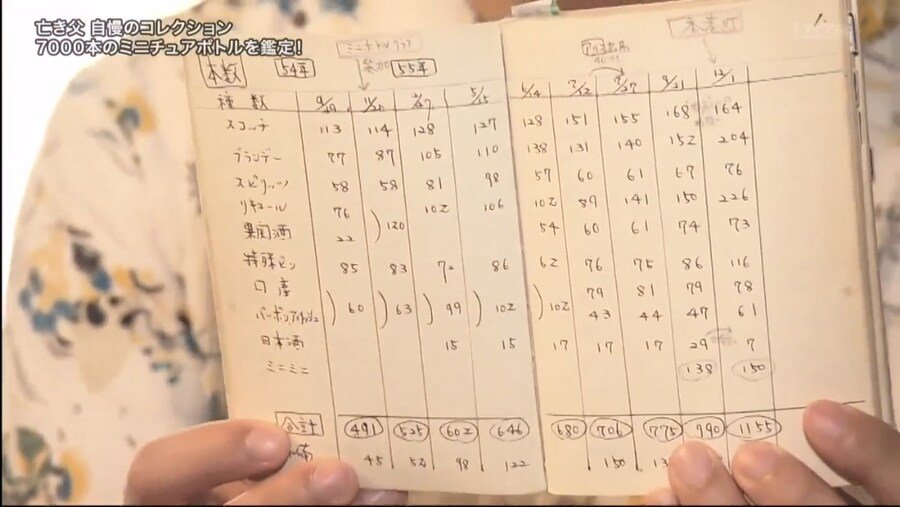 亡き父 自慢のコレクション
7000本のミニチュアボトルを鑑定!
ミニボトルクラブ
本数 54年 参加 55年
種 数 9/29 11/20 2/27 5/25 6/14 8/12 8/27 9/21 12/1
スコッチ 113 114 128 127 128 151 155 168 164
ブランデー 77 87 105 110 138 131 140 152 204
スピリッツ 58 58 81 98 57 60 61 67 76
リキュール 76 ) 120 102 106 102 87 141 150 226
果実酒 22 54 60 61 74 73
特殊ビン 85 83 72 86 62 76 75 86 116
口産 ) 60 ) 63 ) 99 ) 102 ) 102 79 81 79 78
バーボンアイリッシュ 43 44 47 61
日本酒 15 15 17 17 17 29 7
ミニミニ 138 150
合計 491 525 602 646 680 706 775 990 1155
45 52 98 122 150